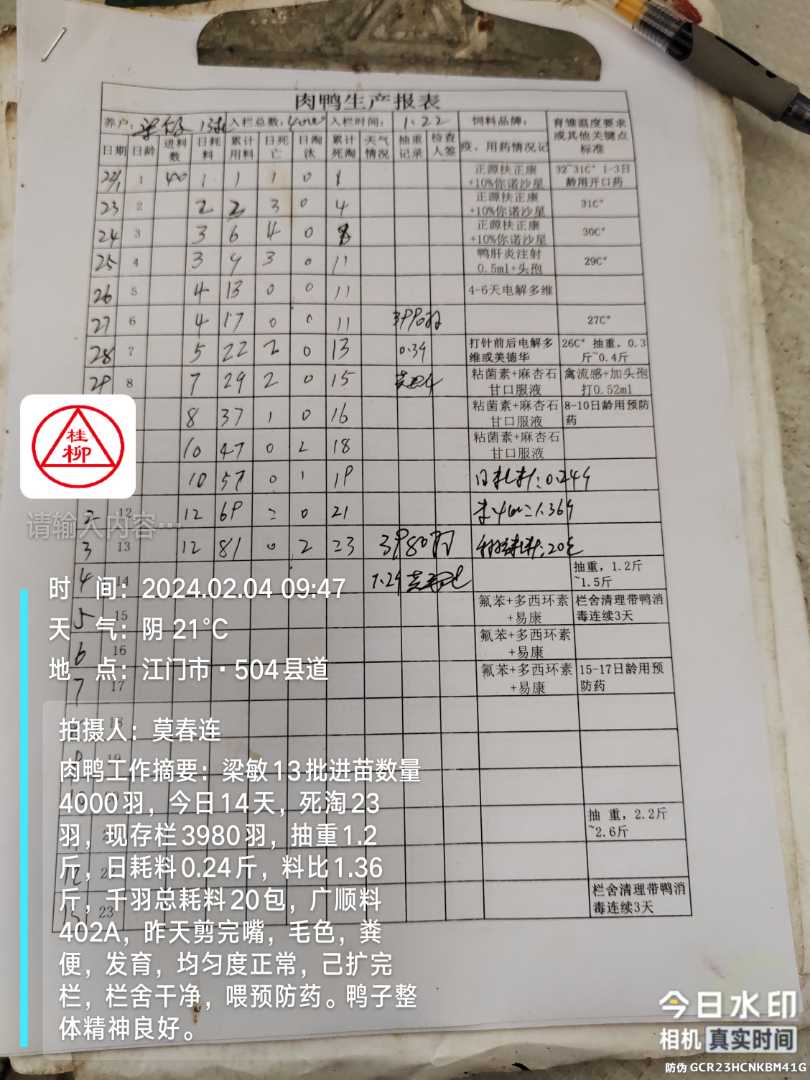 肉鸭生产报表
养户: 13批 入栏总数: 4000 入栏时间: 1.22 饲料品牌: 育雏温度要求或其他关键点标准
日期 日龄 进料数 日耗料 累计用料 日死亡 日淘汰 累计死淘 天气情况 抽重记录 检查人签 疫、用药情况记
22/1 1 40 1 1 1 0 正源扶正康+10%你诺沙星 32~31C° 1-3日龄用开口药
23 2 2 2 3 0 4 正源扶正康+10%你诺沙星 31C°
24 3 3 6 4 0 8 正源扶正康+10%你诺沙星 30C°
25 4 3 9 3 0 11 鸭肝炎注射0.5ml+头孢 29C°
26 5 4 13 0 0 11 4-6天电解多维
27 6 4 17 0 0 11 3990羽 27C°
28 7 5 22 2 0 13 0.39 打针前后电解多维或美德华 26C° 抽重,0.3斤~0.4斤
29 8 7 29 2 0 15 粘菌素+麻杏石甘口服液 禽流感+加头孢打0.52ml
8 37 1 0 16 粘菌素+麻杏石甘口服液 8-10日龄用预防药
10 47 0 2 18 粘菌素+麻杏石甘口服液
10 57 0 1 19 日耗料:0.24斤
2 12 12 69 2 0 21 1.36斤
3 13 12 81 0 2 23 3980羽 20包
4 14 1.2斤 抽重,1.2斤~1.5斤
5 15 氟苯+多西环素+易康 栏舍清理带鸭消毒连续3天
6 16 氟苯+多西环素+易康
7 17 氟苯+多西环素+易康 15-17日龄用预防药
抽 重,2.2斤~2.6斤
23 栏舍清理带鸭消毒连续3天
桂柳
请输入内容…
时 间: 2024.02.04 09:47
天 气: 阴 21℃
地 点: 江门市·504县道
拍摄人: 莫春连
肉鸭工作摘要: 梁敏13批进苗数量
4000羽,今日14天,死淘23
羽,现存栏3980羽,抽重1.2
斤,日耗料0.24斤,料比1.36
斤,千羽总耗料20包,广顺料
402A,昨天剪完嘴,毛色,粪
便,发育,均匀度正常,己扩完
栏,栏舍干净,喂预防药。鸭子整
体精神良好。
今日水印
相机 真实时间
防伪 GCR23HCNKBM41G